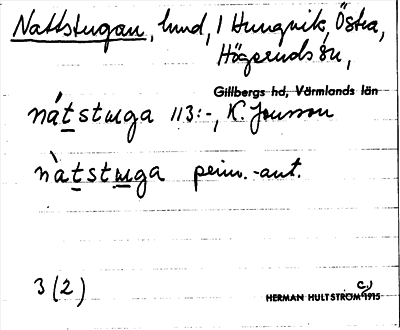 Nattstugan, hmd, 1 Hungvik, Östra,
Högserud sn,
Gillbergs hd, Värmlands län
nátstuga 113:-, K. Jonsson
nàtstuga prim.-ant.
3 (2)
HERMAN HULTSTRÖM 1915